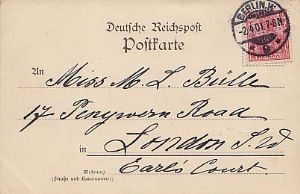 Deutsche Reichspost
Postkarte
BERLIN.W.
-2.4.01.7-8N
An Miss M. L. Bülle
17 Penywern Road
in London S.W
Earl's Court.
Wohnung
(Straße und Hausnummer)